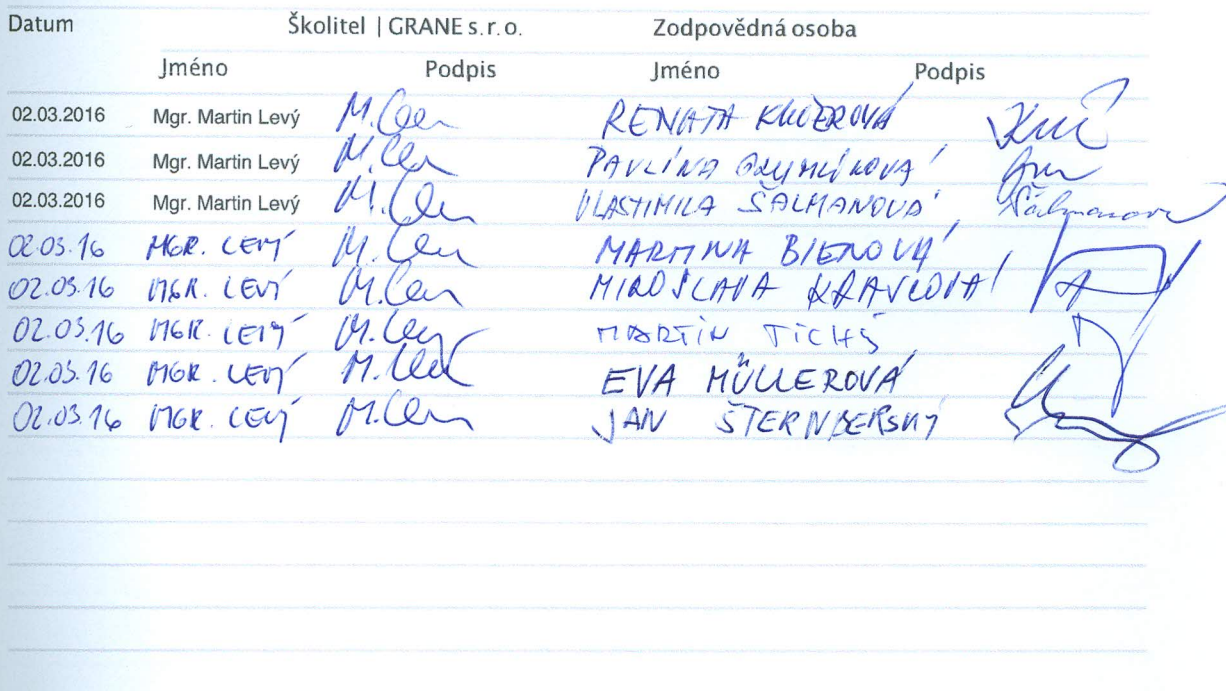 Datum Školitel | GRANE s.r.o. Zodpovědná osoba
Jméno Podpis Jméno Podpis
02.03.2016 Mgr. Martin Levý RENATA
02.03.2016 Mgr. Martin Levý PAVLÍNA
02.03.2016 Mgr. Martin Levý VLASTIMILA ŠALMANOVÁ Šalmanová
02.03.16 MGR. LEVÝ MARTINA BIENOVÁ
02.03.16 MGR. LEVÝ MIROSLAVA KRAVCOVÁ
02.03.16 MGR. LEVÝ MARTIN TICHÝ
02.03.16 MGR. LEVÝ EVA MÜLLEROVÁ
02.03.16 MGR. LEVÝ JAN ŠTERNBERSKÝ